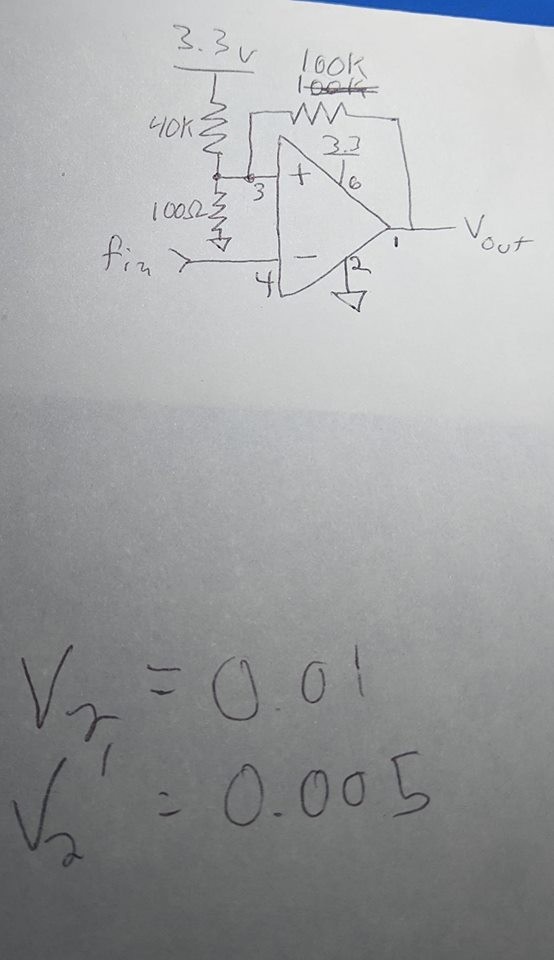 3.3v
100K
100K
40K
3.3
+
3
6
100Ω
fin
1
Vout
-
4
2
V2 = 0.01
V2' = 0.005